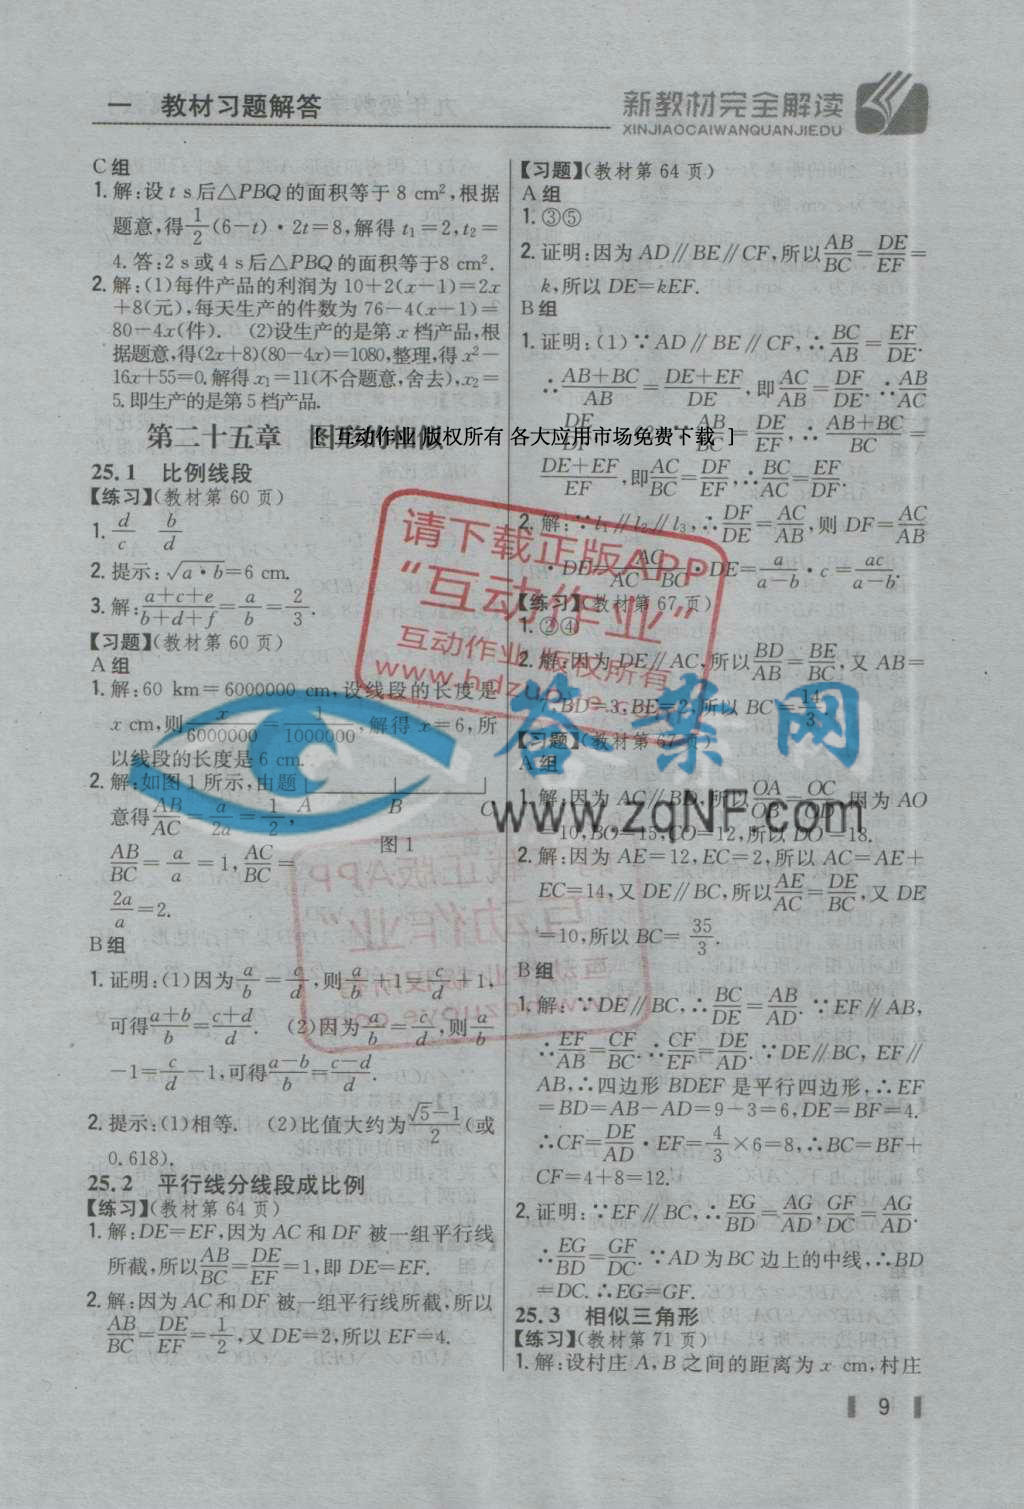 一 教材习题解答
新教材完全解读
XINJIAOCAIWANQUANJIEDU
C组
1. 解:设 t s后△PBQ的面积等于 8 cm²,根据
题意,得1/2(6-t)·2t=8,解得 t₁=2,t₂=
4. 答:2 s或 4 s后△PBQ的面积等于8 cm².
2. 解:(1)每件产品的利润为 10+2(x-1)=2x
+8(元),每天生产的件数为 76-4(x-1)=
80-4x(件). (2)设生产的是第 x 档产品,根
据题意,得(2x+8)(80-4x)=1080,整理,得 x²-
16x+55=0.解得 x₁=11(不合题意,舍去),x₂=
5.即生产的是第 5 档产品.
第二十五章 图形的相似
[ 互动作业 版权所有 各大应用市场免费下载 ]
25.1 比例线段
【练习】(教材第 60 页)
1. d/c b/d
2. 提示:√a·b=6 cm.
3. 解:(a+c+e)/(b+d+f)=a/b=2/3.
【习题】(教材第 60 页)
A组
1. 解:60 km=6000000 cm,设线段的长度是
x cm,则x/6000000=1/1000000,解得 x=6,所
以线段的长度是 6 cm.
2. 解:如图 1 所示,由题
意得AB/AC=a/2a=1/2,
A B C
图 1
AB/BC=a/a=1,AC/BC=
2a/a=2.
B组
1. 证明:(1)因为a/b=c/d,则a/b+1=c/d+1,
可得(a+b)/b=(c+d)/d. (2)因为a/b=c/d,则a/b
-1=c/d-1,可得(a-b)/b=(c-d)/d.
2. 提示:(1)相等. (2)比值大约为(√5-1)/2(或
0.618).
25.2 平行线分线段成比例
【练习】(教材第 64 页)
1. 解:DE=EF,因为 AC 和 DF 被一组平行线
所截,所以AB/BC=DE/EF=1,即 DE=EF.
2. 解:因为 AC和 DF 被一组平行线所截,所以
AB/BC=DE/EF=1/2,又 DE=2,所以 EF=4.
【习题】(教材第 64 页)
A组
1. ③⑤
2. 证明:因为 AD∥BE∥CF,所以AB/BC=DE/EF=
k,所以 DE=kEF.
B组
1. 证明:(1)∵AD∥BE∥CF,∴BC/AB=EF/DE.
∴(AB+BC)/AB=(DE+EF)/DE,即AC/AB=DF/DE.∴AB/AC
=DE/DF. (2)∵AB/BC=DE/EF,∴(AB+BC)/BC=
(DE+EF)/EF,即AC/BC=DF/EF,∴BC/AC=EF/DF.
2. 解:∵l₁∥l₂∥l₃,∴DF/DE=AC/AB,则 DF=AC/AB
·DE=AC/(AC-BC)·DE=a/(a-b)·c=ac/(a-b).
【练习】(教材第 67 页)
1. ②④
2. 解:因为 DE∥AC,所以BD/AB=BE/BC,又 AB=
7,BD=3,BE=2,所以 BC=14/3.
【习题】(教材第 67 页)
A组
1. 解:因为 AC∥BD,所以OA/OB=OC/OD,因为 AO
=10,BO=15,CO=12,所以 DO=18.
2. 解:因为 AE=12,EC=2,所以 AC=AE+
EC=14,又 DE∥BC,所以AE/AC=DE/BC,又 DE
=10,所以 BC=35/3.
B组
1. 解:∵DE∥BC,∴BC/DE=AB/AD.∵EF∥AB,
∴EF/AB=CF/BC.∴CF/EF=DE/AD.∵DE∥BC, EF∥
AB,∴四边形 BDEF 是平行四边形,∴EF
=BD=AB-AD=9-3=6,DE=BF=4.
∴CF=DE/AD·EF=4/3×6=8,∴BC=BF+
CF=4+8=12.
2. 证明:∵EF∥BC,∴EG/BD=AG/AD,GF/DC=AG/AD.
∴EG/BD=GF/DC.∵AD为BC边上的中线,∴BD
=DC.∴EG=GF.
25.3 相似三角形
【练习】(教材第 71 页)
1. 解:设村庄 A,B 之间的距离为 x cm,村庄
9
请下载正版APP
“互动作业”
互动作业 版权所有
答案网
www.zqNF.com